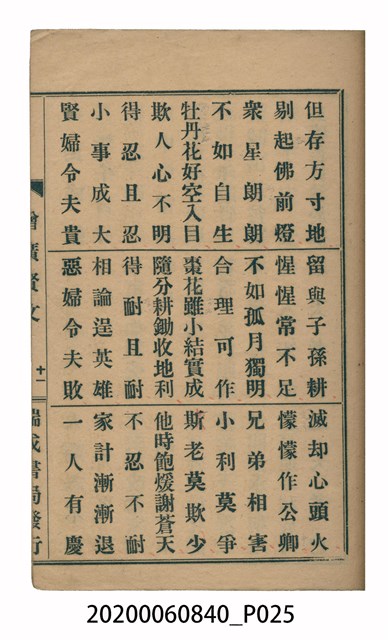 但存方寸地 留與子孫耕 滅却心頭火
剔起佛前燈 惺惺常不足 懞懞作公卿
衆星朗朗 不如孤月獨明 兄弟相害
不如自生 合理可作 小利莫爭
牡丹花好空入目 棗花雖小結實成 斯老莫欺少
欺人心不明 隨分耕鋤收地利 他時飽煖謝蒼天
得忍且忍 得耐且耐 不忍不耐
小事成大 相論逞英雄 家計漸漸退
賢婦令夫貴 惡婦令夫敗 一人有慶
增廣賢文 十一 瑞成書局發行
20200060840_P025